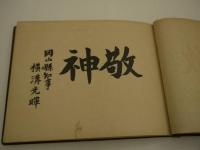 敬神
岡山縣知事
横溝光暉